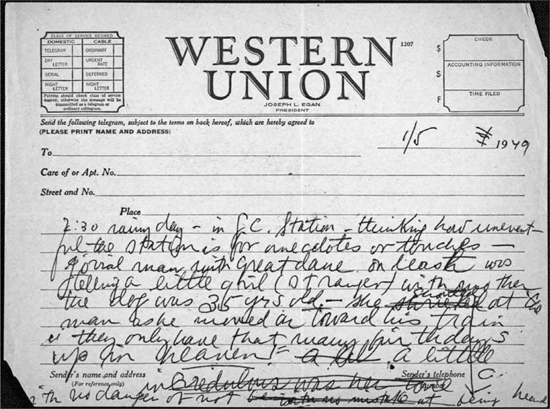 CLASS OF SERVICE DESIRED
DOMESTIC CABLE
TELEGRAM ORDINARY
DAY LETTER URGENT RATE
SERIAL DEFERRED
NIGHT LETTER NIGHT LETTER
Patrons should check class of service desired; otherwise the message will be transmitted as a telegram or ordinary cablegram.
WESTERN
UNION
1207
JOSEPH L. EGAN
PRESIDENT
$
S
F
CHECK
ACCOUNTING INFORMATION
TIME FILED
Send the following telegram, subject to the terms on back hereof, which are hereby agreed to
(PLEASE PRINT NAME AND ADDRESS)
1/5 1949
To
Care of or Apt. No.
Street and No.
Place
2:30 rainy day - in G.C. Station - thinking how unevent-
ful the station is for anecdotes or touches -
jovial man with great dane on leash was
telling a little girl (stranger) with mother
the dog was 35 yrs old - she at
man as he moved on toward his train
"they only have that many birthdays
up in heaven" a little
Sender's name and address
(For reference only)
Sender's telephone
in credulous was her tone
with no danger of not being heard